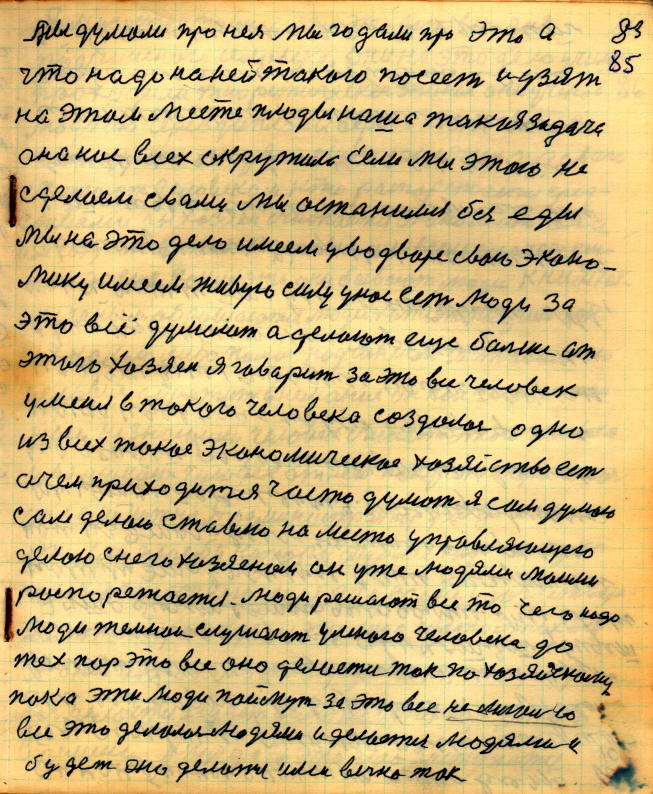 мы думали про нея мы годали про это а 83
что надо наней такого посеет и узят 85
на этом месте плоды наша такая задача
она нас всех окружила если мы этого не
сделаем свами мы останимся без еды
мы на это дело имеем уводворе свою эконо-
мику имеем живую силу унас ест люди за
это всё думают а делают еще болше от
этого хозяен я говарит за это все человек
уменя в такого человека создалас одно
из всех такое экономическое хозяйство ест
очем приходится часто думат я сам думаю
сам делаю ставлю на место управляющего
делаю снего хозяеном он уже людями маими
роспорежается. Люди решают все то чего надо
люди темнаи слушают умного человека до
тех пор это все оно делается так по хозяйскому
пока эти люди поймут за это все
все это делалося людями и делается людями и
будет оно делатся ими вечно так